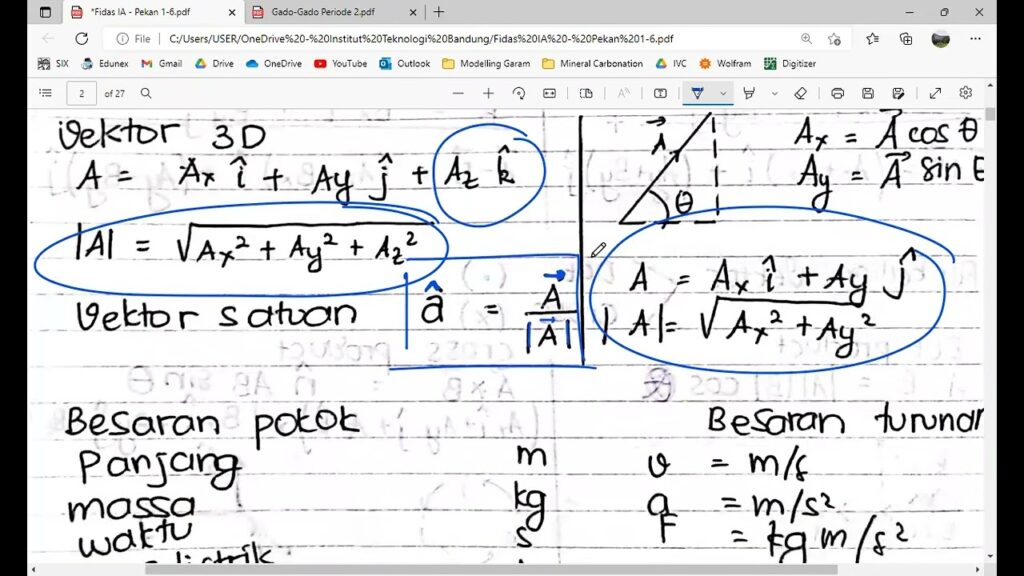 *Fidas IA - Pekan 1-6.pdf
Gado-Gado Periode 2.pdf
File
C:/Users/USER/OneDrive%20-%20Institut%20Teknologi%20Bandung/Fidas%20IA%20-%20Pekan%201-6.pdf
SIX Edunex Gmail Drive OneDrive YouTube Outlook Modelling Garam Mineral Carbonation IVC Wolfram Digitizer
2 of 27
Vektor 3D
A = Ax î + Ay ĵ + Az k̂
|A| = √Ax² + Ay² + Az²
Vektor satuan
â = A⃗ / |A⃗|
A⃗
θ
Ax = A⃗ cos θ
Ay = A⃗ sin θ
A = Ax î + Ay ĵ
|A| = √Ax² + Ay²
Besaran pokok
Besaran turunan
Panjang m
v = m/s
massa kg
a = m/s²
waktu s
F = kg m/s²
listrik